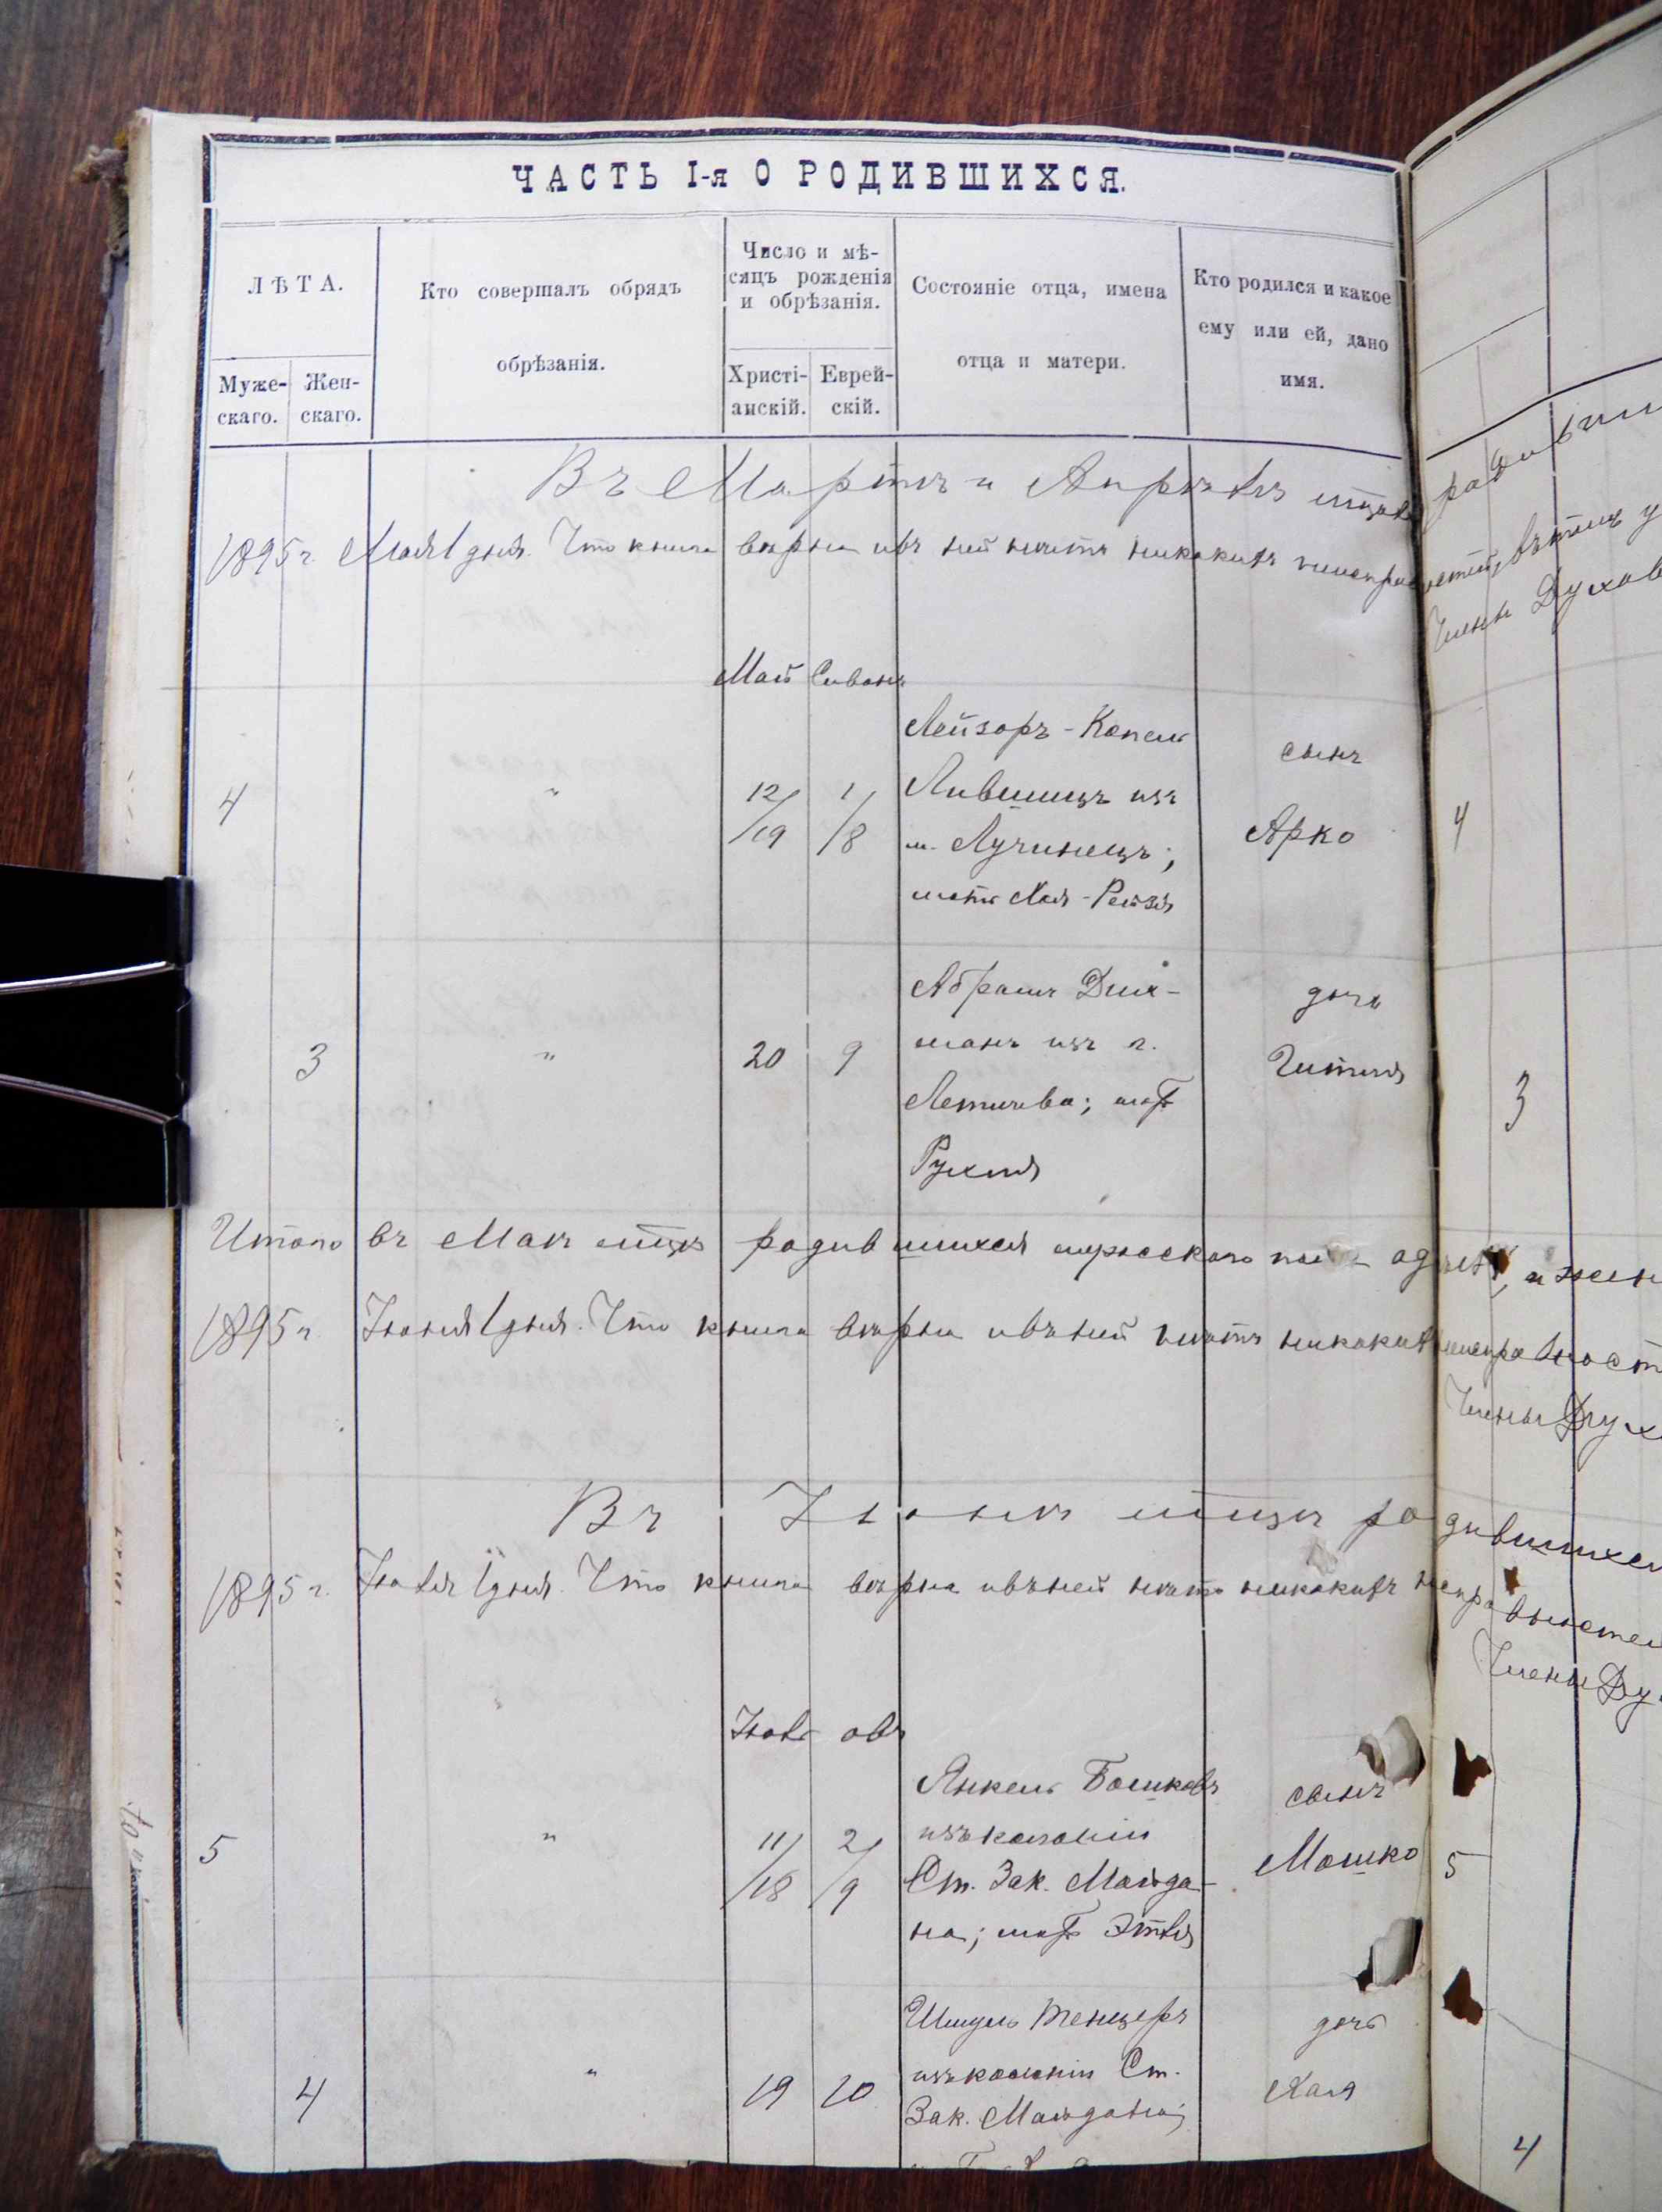 ЧАСТЬ I-я О РОДИВШИХСЯ.
ЛѢТА.
Муже-
скаго.
Жен-
скаго.
Кто совершалъ обрядъ
обрѣзанія.
Число и мѣ-
сяцъ рожденія
и обрѣзанія.
Христі-
анскій.
Еврей-
скій.
Состояніе отца, имена
отца и матери.
Кто родился и какое
ему или ей, дано
имя.
Въ Мартѣ и Апрѣлѣ
1895 г. Мая 1 дня. Что книга вѣрна и въ ней нѣтъ никакихъ
Члены Духов
Май Сиванъ
4 " 12/19 1/8
Лейзоръ-Копель
Лившицъ изъ
м. Лучинецъ;
мать Хая-Рейзя
сынъ
Арко
4
3 " 20 9
Абрамъ Дих-
манъ изъ г.
Летичева; мат
Рухля
дочь
Гитля
3
Итого въ Маѣ мцѣ родившихся мужескаго пола одинъ, и жен
1895 г. Іюня 1 дня. Что книга вѣрна и въ ней нѣтъ никакихъ неисправност
Члены Дух
Въ Іюнѣ мцѣ родившихся
1895 г. Іюля 1 дня. Что книга вѣрна и въ ней нѣтъ никакихъ
Члены Ду
Іюль овъ
5 " 11/18 2/9
Янкель Бошковъ
изъ колоніи
Ст. Зак. Майда-
на; мат Этля
сынъ
Мошко
5
4 " 19 10
Шмуль Тенцеръ
изъ колоніи Ст.
Зак. Майдана;
дочь
Хая
4